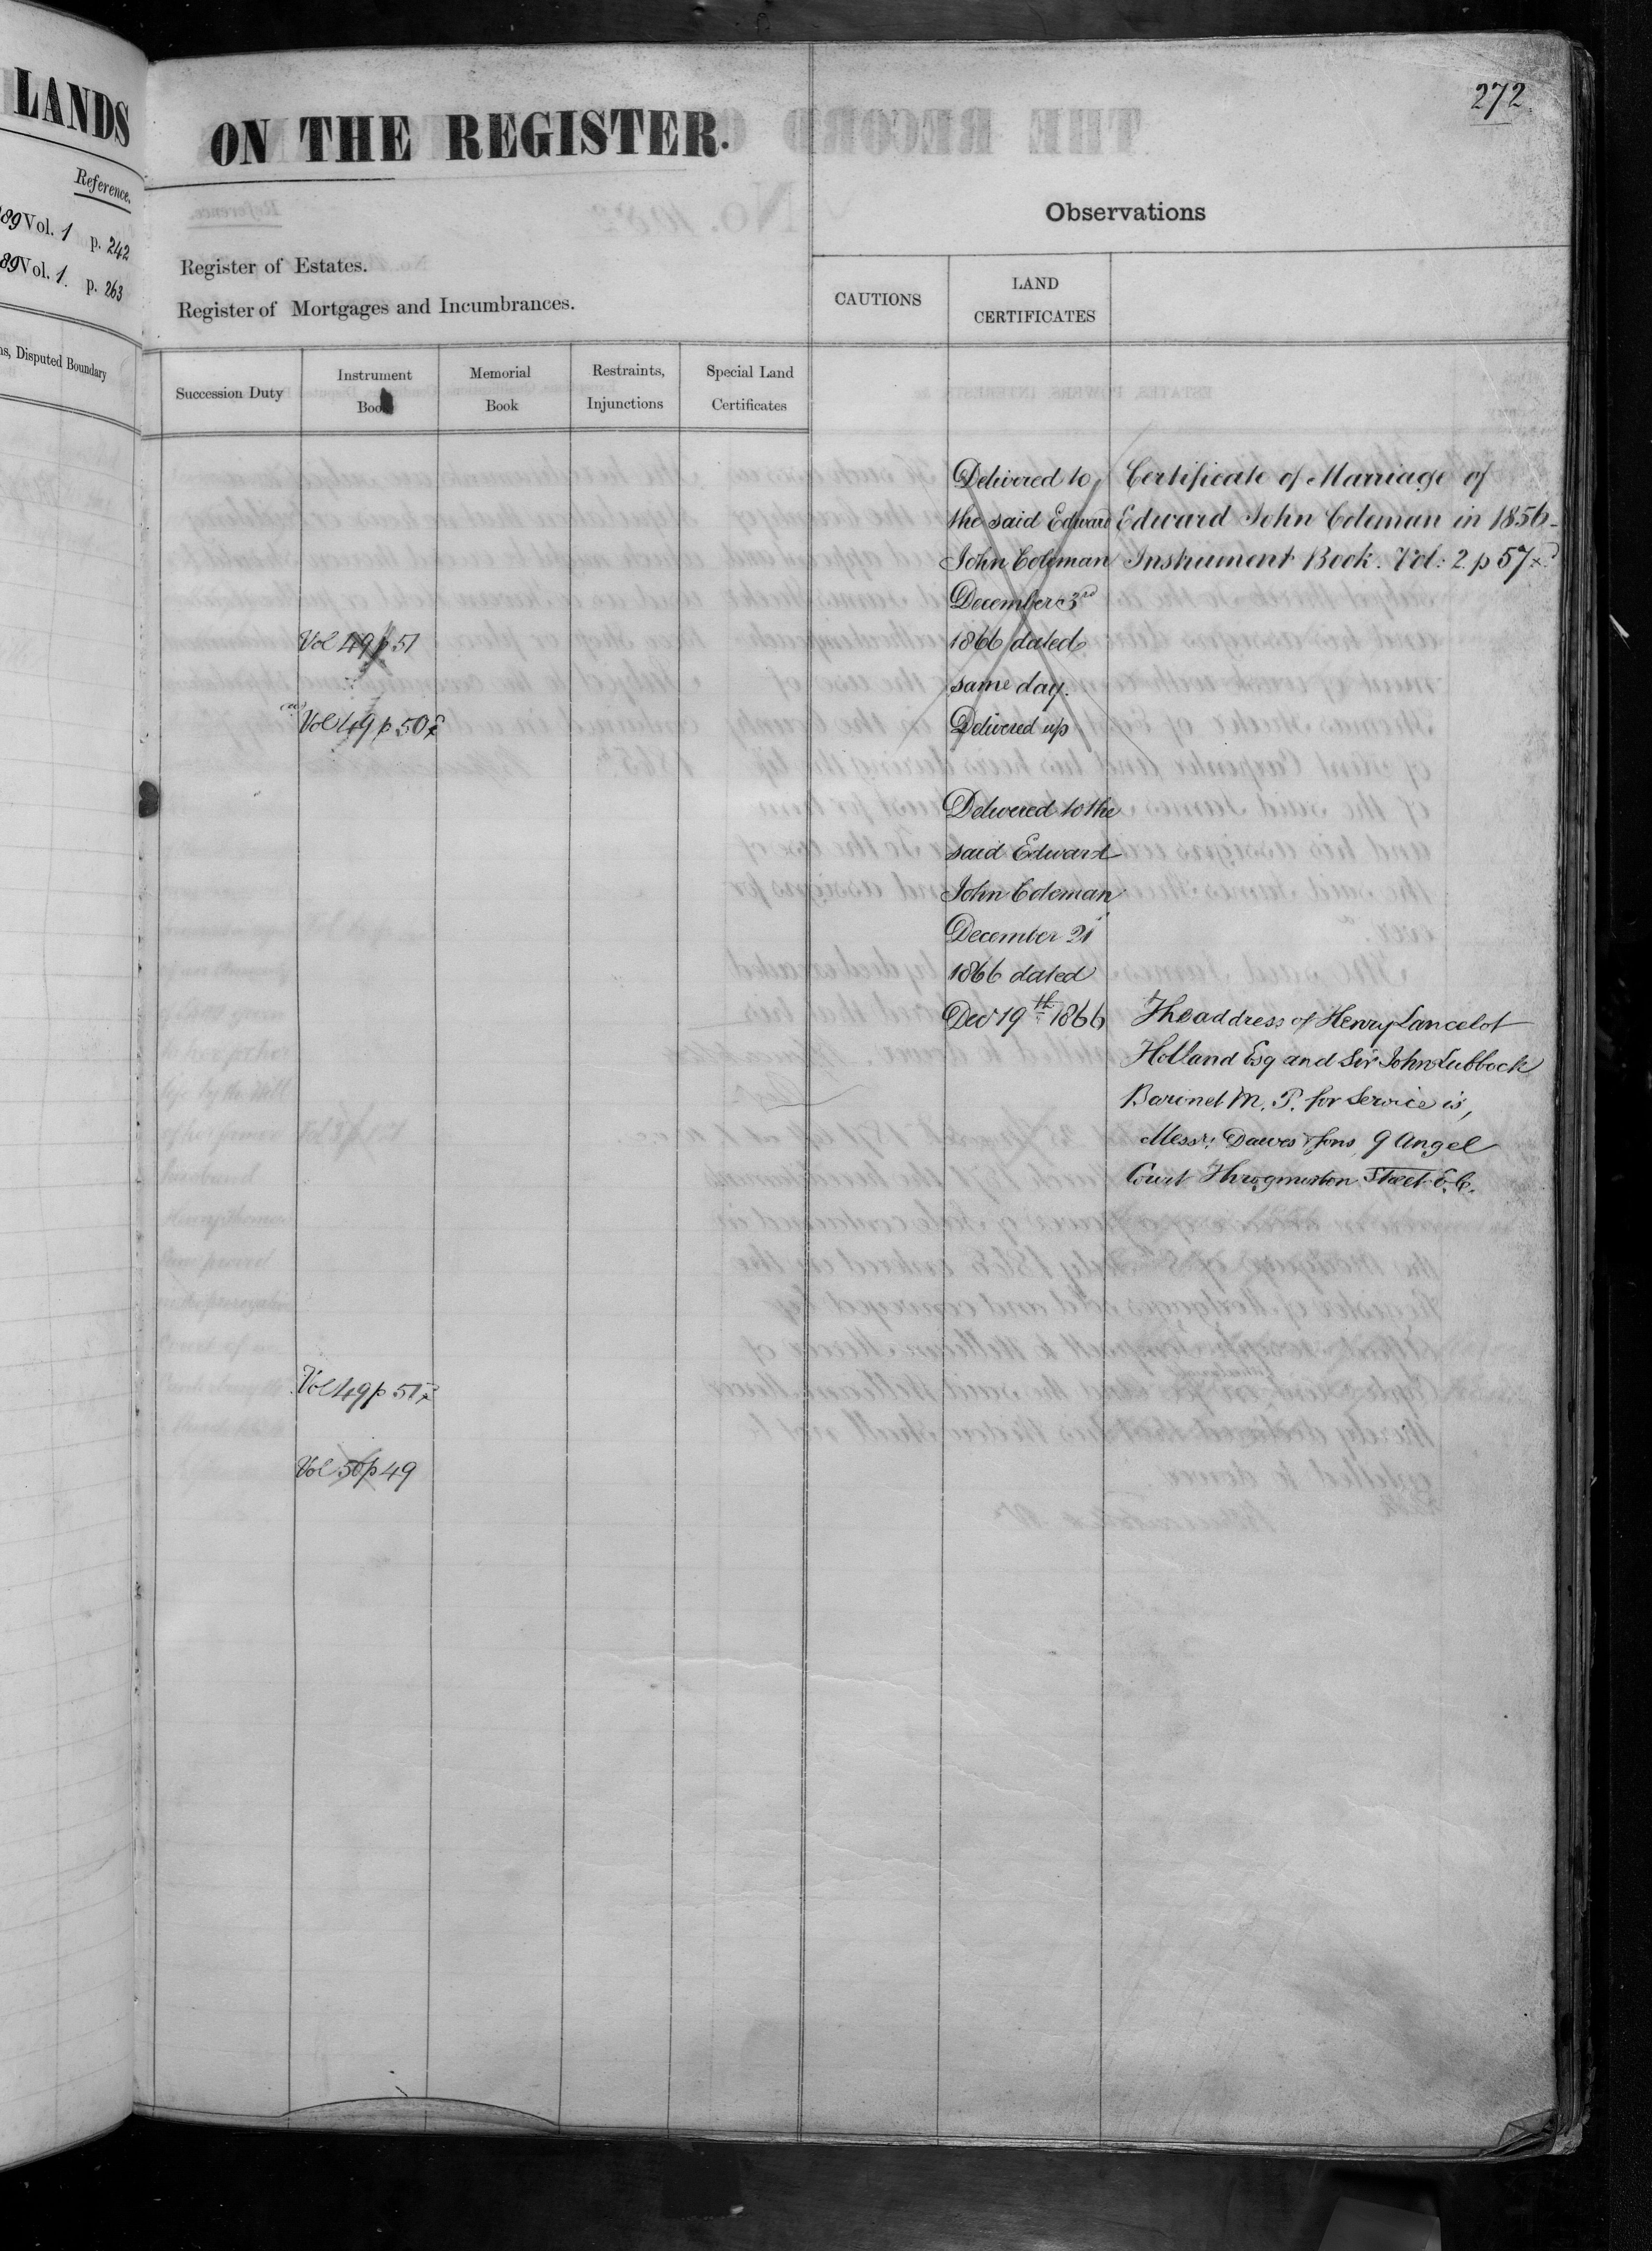 LANDS
Reference.
89 Vol. 1 p. 242
89 Vol. 1. p. 263
ns, Disputed Boundary
272
ON THE REGISTER.
Observations
Register of Estates.
Register of Mortgages and Incumbrances.
CAUTIONS
LAND
CERTIFICATES
Succession Duty
Instrument
Book
Memorial
Book
Restraints,
Injunctions
Special Land
Certificates
Vol 49 p 51
Vol 49 p 50
Vol 49 p 51
Vol 50 p 49
Delivered to
the said Edward
John Coleman
December 3rd
1866 dated
same day.
Delivered up
Delivered to the
said Edward
John Coleman
December 21
1866 dated
Dec 19th 1866
Certificate of Marriage of
Edward John Coleman in 1856
Instrument Book. Vol: 2 p 57
The address of Henry Lancelot
Holland Esq and Sir John Lubbock
Baronet M. P. for Service is,
Messrs Dawes & Sons, 9 Angel
Court Throgmorton Street E.C.